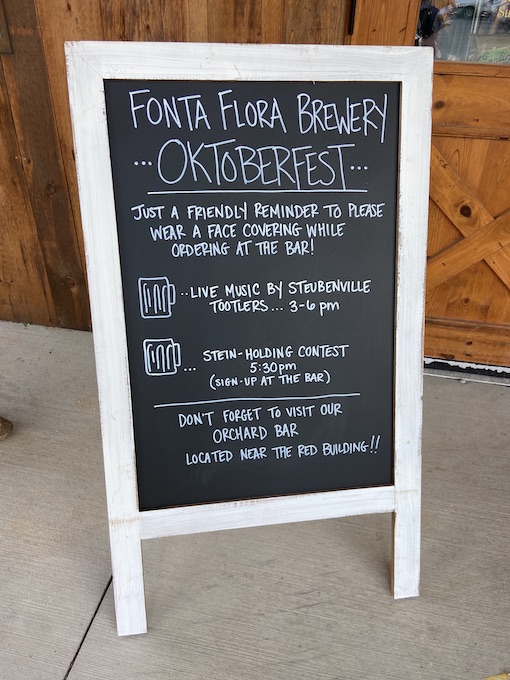 FONTA FLORA BREWERY
...OKTOBERFEST...
JUST A FRIENDLY REMINDER TO PLEASE
WEAR A FACE COVERING WHILE
ORDERING AT THE BAR!
..LIVE MUSIC BY STEUBENVILLE
TOOTLERS... 3-6 pm
... STEIN-HOLDING CONTEST
5:30pm
(SIGN-UP AT THE BAR)
DON'T FORGET TO VISIT OUR
ORCHARD BAR
LOCATED NEAR THE RED BUILDING!!